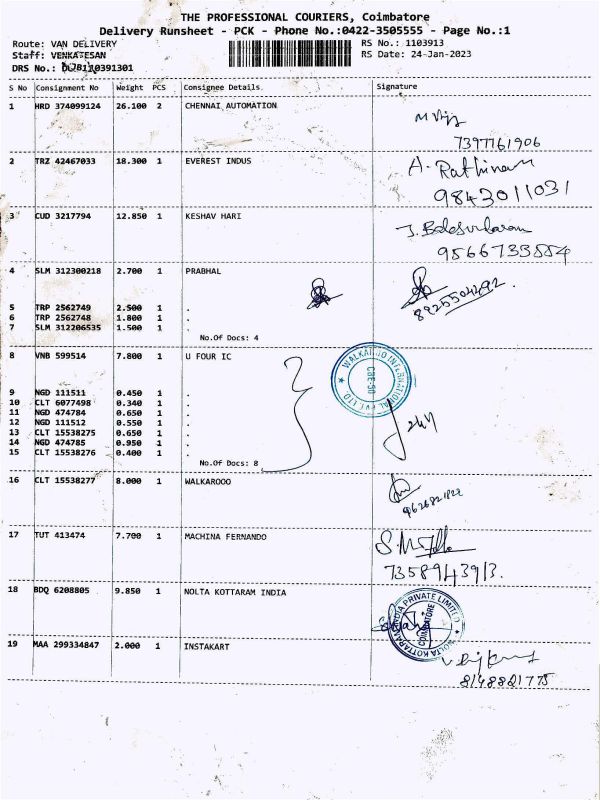 THE PROFESSIONAL COURIERS, Coimbatore
Delivery Runsheet - PCK - Phone No.:0422-3505555 - Page No.:1
Route: VAN DELIVERY RS No.: 1103913
Staff: VENKATESAN RS Date: 24-Jan-2023
DRS No.:
S No Consignment No Weight PCS Consignee Details Signature
1 HRD 374099124 26.100 2 CHENNAI AUTOMATION
7397161906
2 TRZ 42467033 18.300 1 EVEREST INDUS A. Rathinam
9843011031
3 CUD 3217794 12.850 1 KESHAV HARI
9566733554
4 SLM 312300218 2.700 1 PRABHAL
8925504292.
5 TRP 2562749 2.500 1 .
6 TRP 2562748 1.800 1 .
7 SLM 312206535 1.500 1 .
No.Of Docs: 4
8 VNB 599514 7.800 1 U FOUR IC
WALKAROO INTERNATIONAL PVT. LTD. CBE-50
9 NGD 111511 0.450 1 .
10 CLT 6077498 0.340 1 .
11 NGD 474784 0.650 1 .
12 NGD 111512 0.550 1 .
13 CLT 15538275 0.650 1 .
14 NGD 474785 0.950 1 .
15 CLT 15538276 0.400 1 .
No.Of Docs: 8
16 CLT 15538277 8.000 1 WALKAROOO
17 TUT 413474 7.700 1 MACHINA FERNANDO
7358943913.
18 BDQ 6208805 9.850 1 NOLTA KOTTARAM INDIA
NOLTA KOTTARAM INDIA PRIVATE LIMITED COIMBATORE
19 MAA 299334847 2.000 1 INSTAKART
8148821775